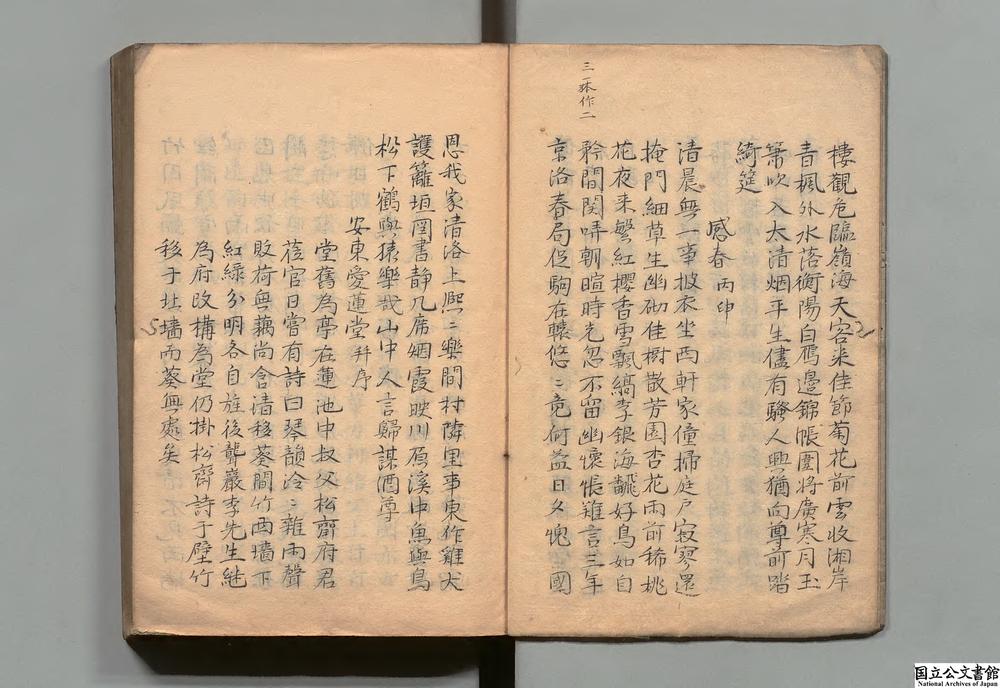 三一本作二
樓觀危臨嶺海天客來佳節菊花前雲收湘岸
青楓外水落衡陽白鴈邊錦帳圍將廣寒月玉
簫吹入太清烟平生儘有騷人興猶向尊前踏
綺筵
感春 丙申
清晨無一事披衣坐西軒家僮掃庭戶寂寥還
掩門細草生幽砌佳樹散芳園杏花雨前稀桃
花夜來繁紅櫻香雪飄縞李銀海飜好鳥如自
矜間関哢朝暄時光忽不留幽懷悵難言三年
京洛春局促駒在轅悠〻竟何益日夕愧國
恩我家清洛上熙〻樂間村隣里事東作雞犬
護籬垣圖書静几席烟霞映川原溪中魚與鳥
松下鶴與猿樂㢤山中人言歸謀酒尊
安東愛蓮堂 幷序
堂舊為亭在蓮池中叔父松齋府君
莅官日嘗有詩曰琴韻泠〻雜雨聲
敗荷無藕尚含清移葵間竹西墻下
紅綠分明各自旌後聾巖李先生継
為府改構為堂仍掛松齋詩于壁竹
移于北墻而葵無處矣
国立公文書館
National Archives of Japan